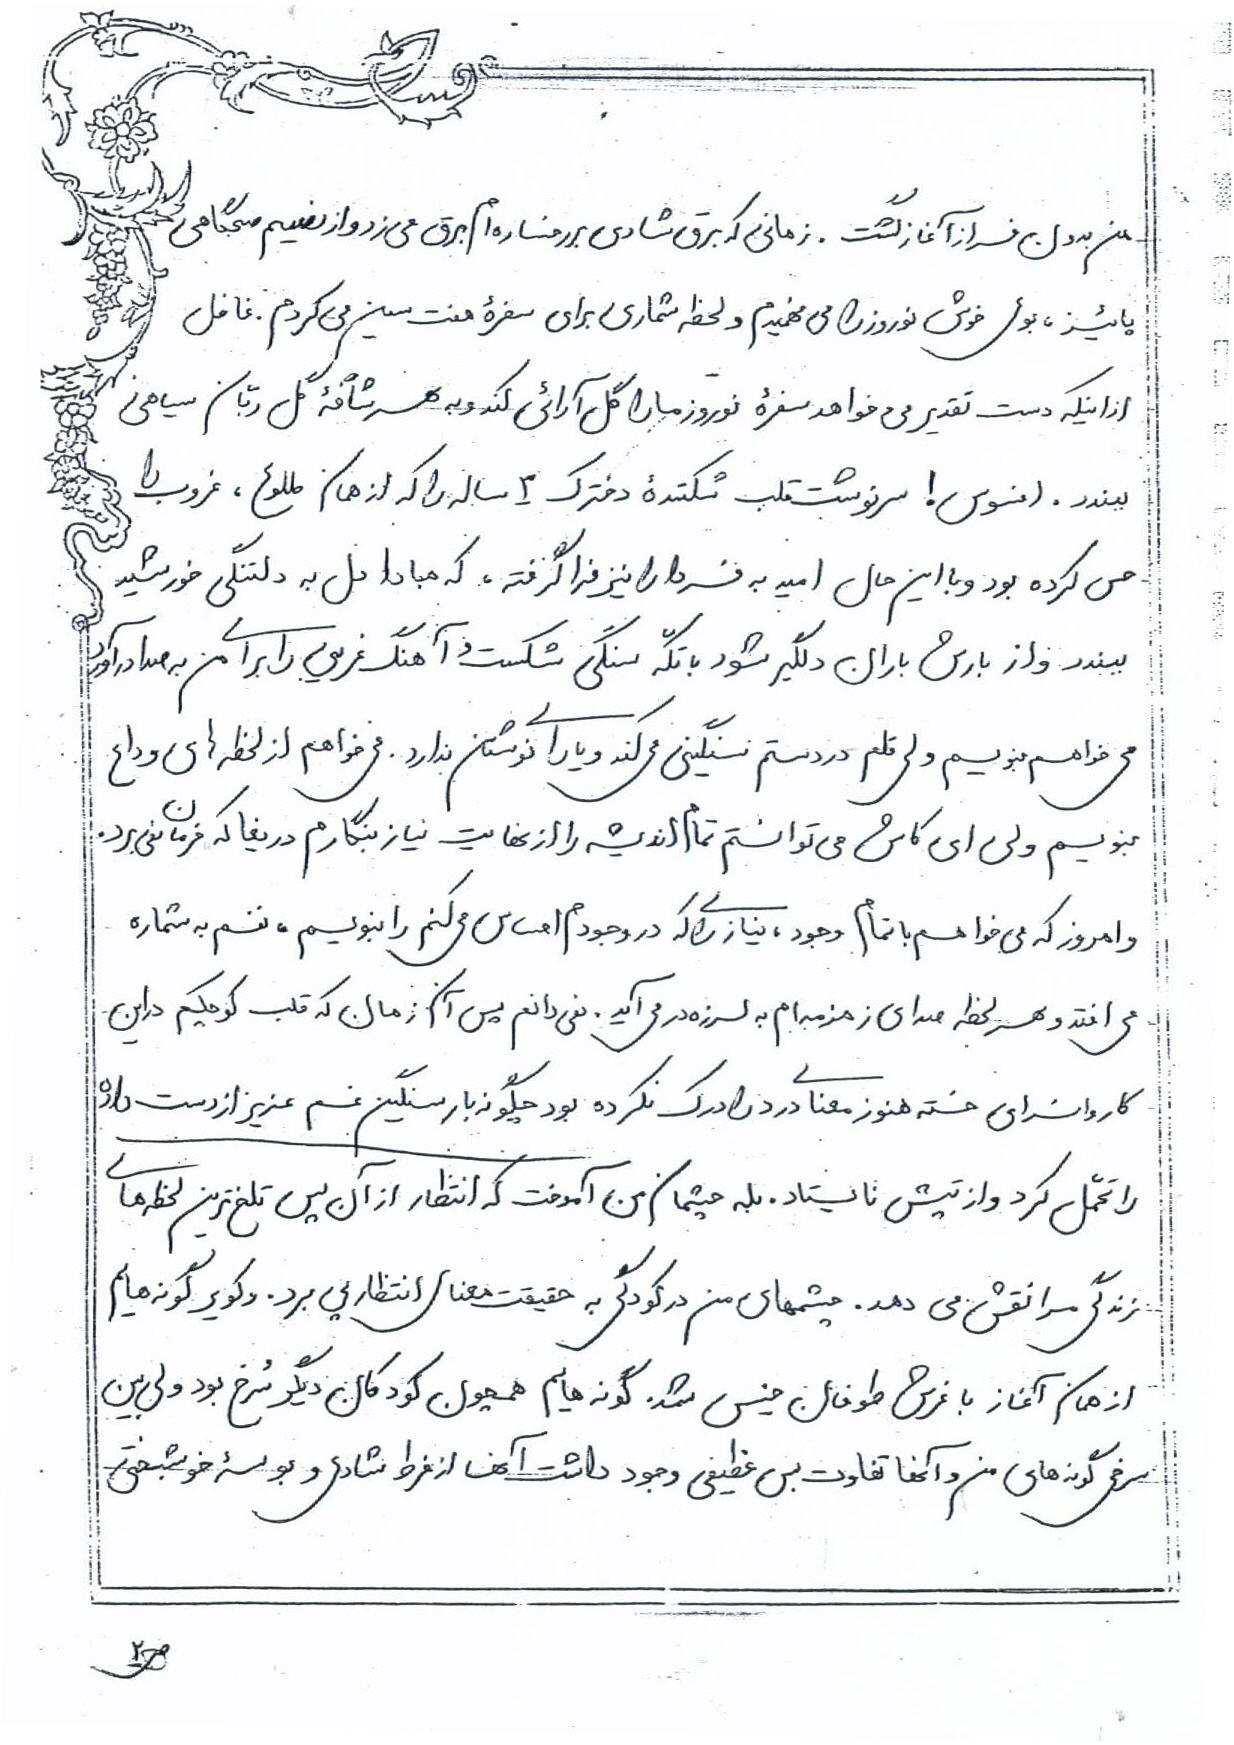 من بدون فراز آغاز گشت. زمانی که برق شادی بر رخساره ام برق می زد و از نسیم صبحگاهی
پائیز، بوی خوش نوروز را می فهمیدم و لحظه شماری برای سفرهٔ هفت سین می کردم. غافل
از اینکه دست تقدیر می خواهد سفرهٔ نوروز ما را گل آرائی کند و به هر شاخهٔ گل ربّان سیاهی
ببندد. افسوس! سرنوشت قلب شکنندهٔ دخترک ۳ ساله را که از همان طلوع، غروب را
حس کرده بود و با این حال امید به فردا را نیز فرا گرفته، که مبادا دل به دلتنگی خورشید
ببندد و از بارش باران دلگیر شود با تکّه سنگی شکست و آهنگ غریبی را برای من به صدا درآورد
می خواهم بنویسم ولی قلم در دستم سنگینی می کند و یارای نوشتن ندارد. می خواهم از لحظه های وداع
بنویسم ولی ای کاش می توانستم تمام اندیشه را از نهایت نیاز بنگارم دریغا که فرمان نمی برد.
و امروز که می خواهم با تمام وجود، نیازی را که در وجودم احساس می کنم را بنویسم، نفسم به شماره
می افتد و هر لحظه صدای زمزمه ام به لرزه در می آید. نمی دانم پس آن زمان که قلب کوچکم در این
کاروانسرای خسته هنوز معنای درد را درک نکرده بود چگونه بار سنگین غم عزیز از دست داده
را تحمّل کرد و از تپش نایستاد. بله چشمان من آموخت که انتظار از آن پس تلخ ترین لحظه های
زندگی مرا نقش می دهد. چشمهای من در کودکی به حقیقت معنای انتظار پی برد. و کویر گونه هایم
از همان آغاز با غرش طوفان خیس شد. گونه هایم همچون کودکان دیگر سُرخ بود ولی بین
سرخی گونه های من و آنها تفاوت بس عظیمی وجود داشت آنها از فرط شادی و بوسهٔ خوشبختی
ص ۲